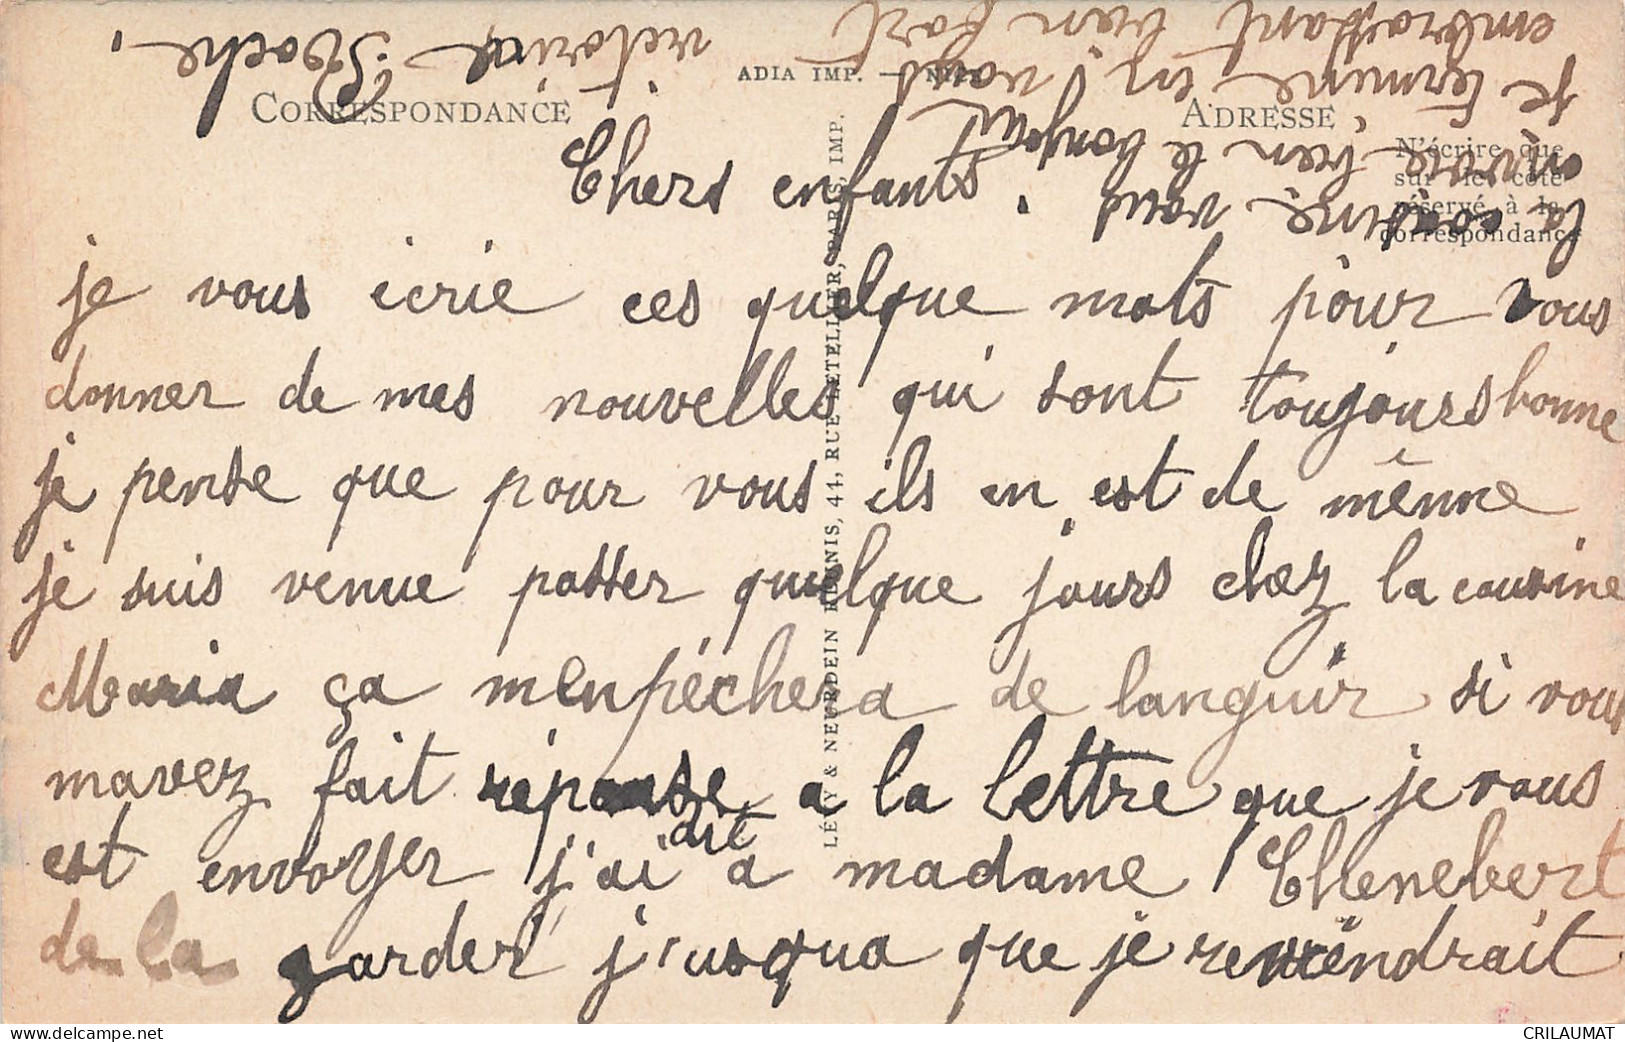 CORRESPONDANCE
ADIA IMP. — NICE
ADRESSE
N'écrire que
sur le côté
réservé à la
correspondance
LÉVY & NEURDEIN RÉUNIS, 44, RUE LETELLIER, PARIS, IMP.
Chers enfants
je vous écrie ces quelque mots pour vous
donner de mes nouvelles qui sont toujours bonne
je pense que pour vous ils en est de mênne
je suis venue passer quelque jours chez la cousine
Maria ça menpéchera de languir si vous
mavez fait réponse a la lettre que je vous
est envoyer j'ai dit a madame Chenebert
de la garder j'usqua que je reviendrait
la cousine vous
envoie bien le bonjour
je termine en vous
embrassant bien fort
victorine Roche
www.delcampe.net
CRILAUMAT